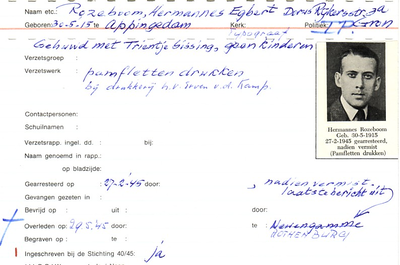 Naam etc.: Rozeboom, Hermannes Egbert Doris Rijkerstr. 3a
Geboren: 30-5-15 te Appingedam Kerk: Politiek: Gron
typograaf
Gehuwd met Trientje Gissing, geen kinderen
Verzetsgroep :
Verzetswerk : pamfletten drukken
bij drukkerij n.v. Erven v.d. Kamp.
Contactpersonen:
Schuilnamen :
Verzetsrapp. ingel. dd. : bij:
Naam genoemd in rapp.:
op bladzijde:
Gearresteerd op :27-2-'45 door: , nadien vermist.
Gevangen gezeten in : laatste bericht uit
Bevrijd op : uit : door:
Overleden op : 29.5.'45 door: te: Neuengamme
Begraven op : te : ROTHENBURG
Ingeschreven bij de Stichting 40/45: ja
Hermannes Rozeboom
Geb. 30-5-1915
27-2-1945 gearresteerd,
nadien vermist
(Pamfletten drukken)